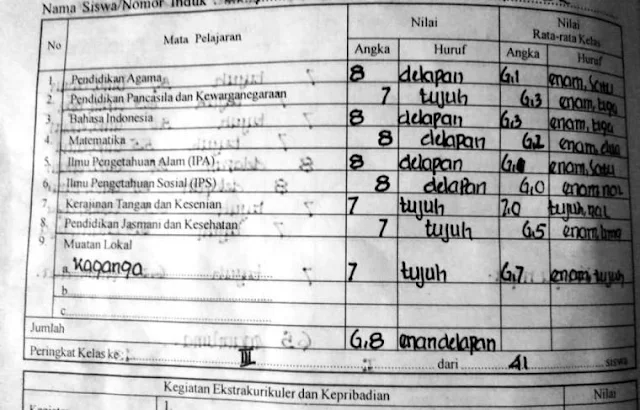 Nama Siswa/Nomor Induk :
No Mata Pelajaran Nilai Nilai Rata-rata Kelas
Angka Huruf Angka Huruf
1. Pendidikan Agama 8 delapan 6,1 enam, satu
2. Pendidikan Pancasila dan Kewarganegaraan 7 tujuh 6,3 enam, tiga
3. Bahasa Indonesia 8 delapan 6,3 enam, tiga
4. Matematika 8 delapan 6,2 enam, dua
5. Ilmu Pengetahuan Alam (IPA) 8 delapan 6,1 enam, satu
6. Ilmu Pengetahuan Sosial (IPS) 8 delapan 6,0 enam nol
7. Kerajinan Tangan dan Kesenian 7 tujuh 7,0 tujuh, nol
8. Pendidikan Jasmani dan Kesehatan 7 tujuh 6,5 enam, lima
9. Muatan Lokal
a. Kaganga 7 tujuh 6,7 enam, tujuh
b.
c.
Jumlah 6,8 enam delapan
Peringkat Kelas ke : III dari 41 siswa
Kegiatan Ekstrakurikuler dan Kepribadian Nilai
1.